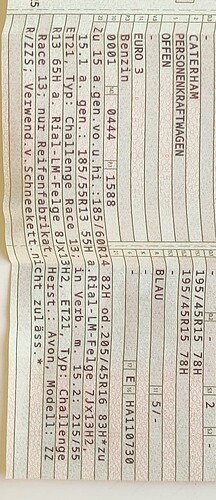 2 -
CATERHAM 195/45R15 78H
PERSONENKRAFTWAGEN 195/45R15 78H
OFFEN -
- BLAU 5/-
EURO 3 -
Benzin E HA110730
0001 0444 1588
Zu 15 a.gen.vo.u.hi.:185/60R14 82H od.205/45R16 83H*zu
15.1 a. gen.: 185/55R13 55H a.Rial-LM-Felge 7Jx13H2,
ET21, Typ: Challenge Race 13; in Verb. m. 15.2: 215/55
R13 65H a. Rial-LM-Felge 8Jx13H2, ET21, Typ: Challenge
Race 13: nur Reifenfabrikat Herst.: Avon, Modell: ZZ
R/ZZS; Verwend.v.Schneekett.nicht zuläss.*